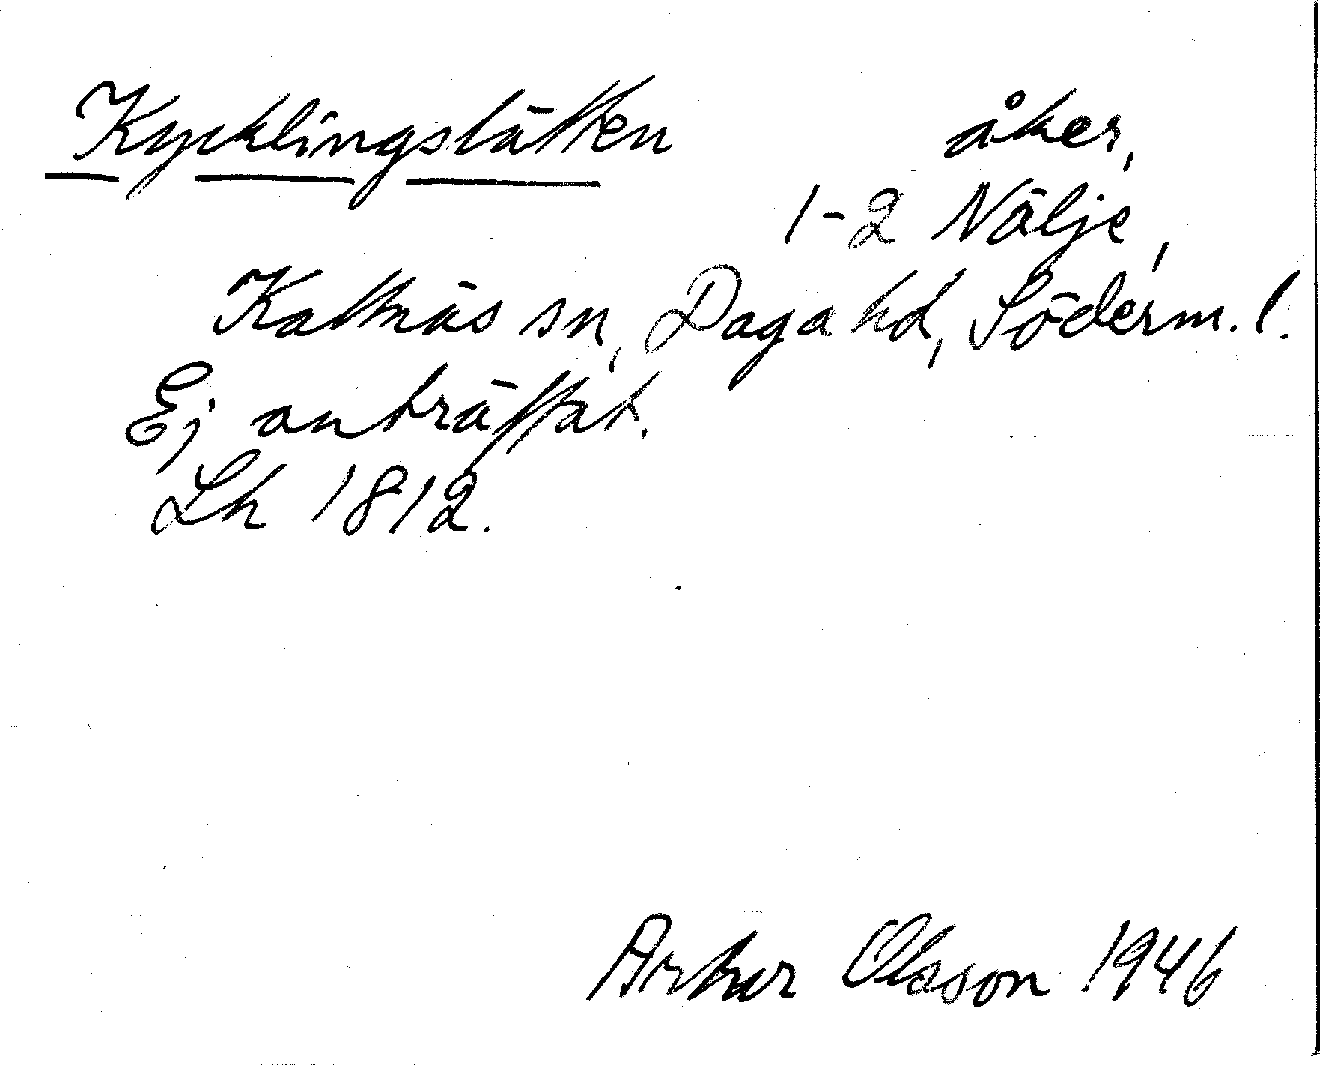 Kycklingslätten åker,
1-2 Nälje,
Kattnäs sn, Daga hd, Söderm. l.
Ej anträffat.
Lh 1812.
Artur Olsson 1946